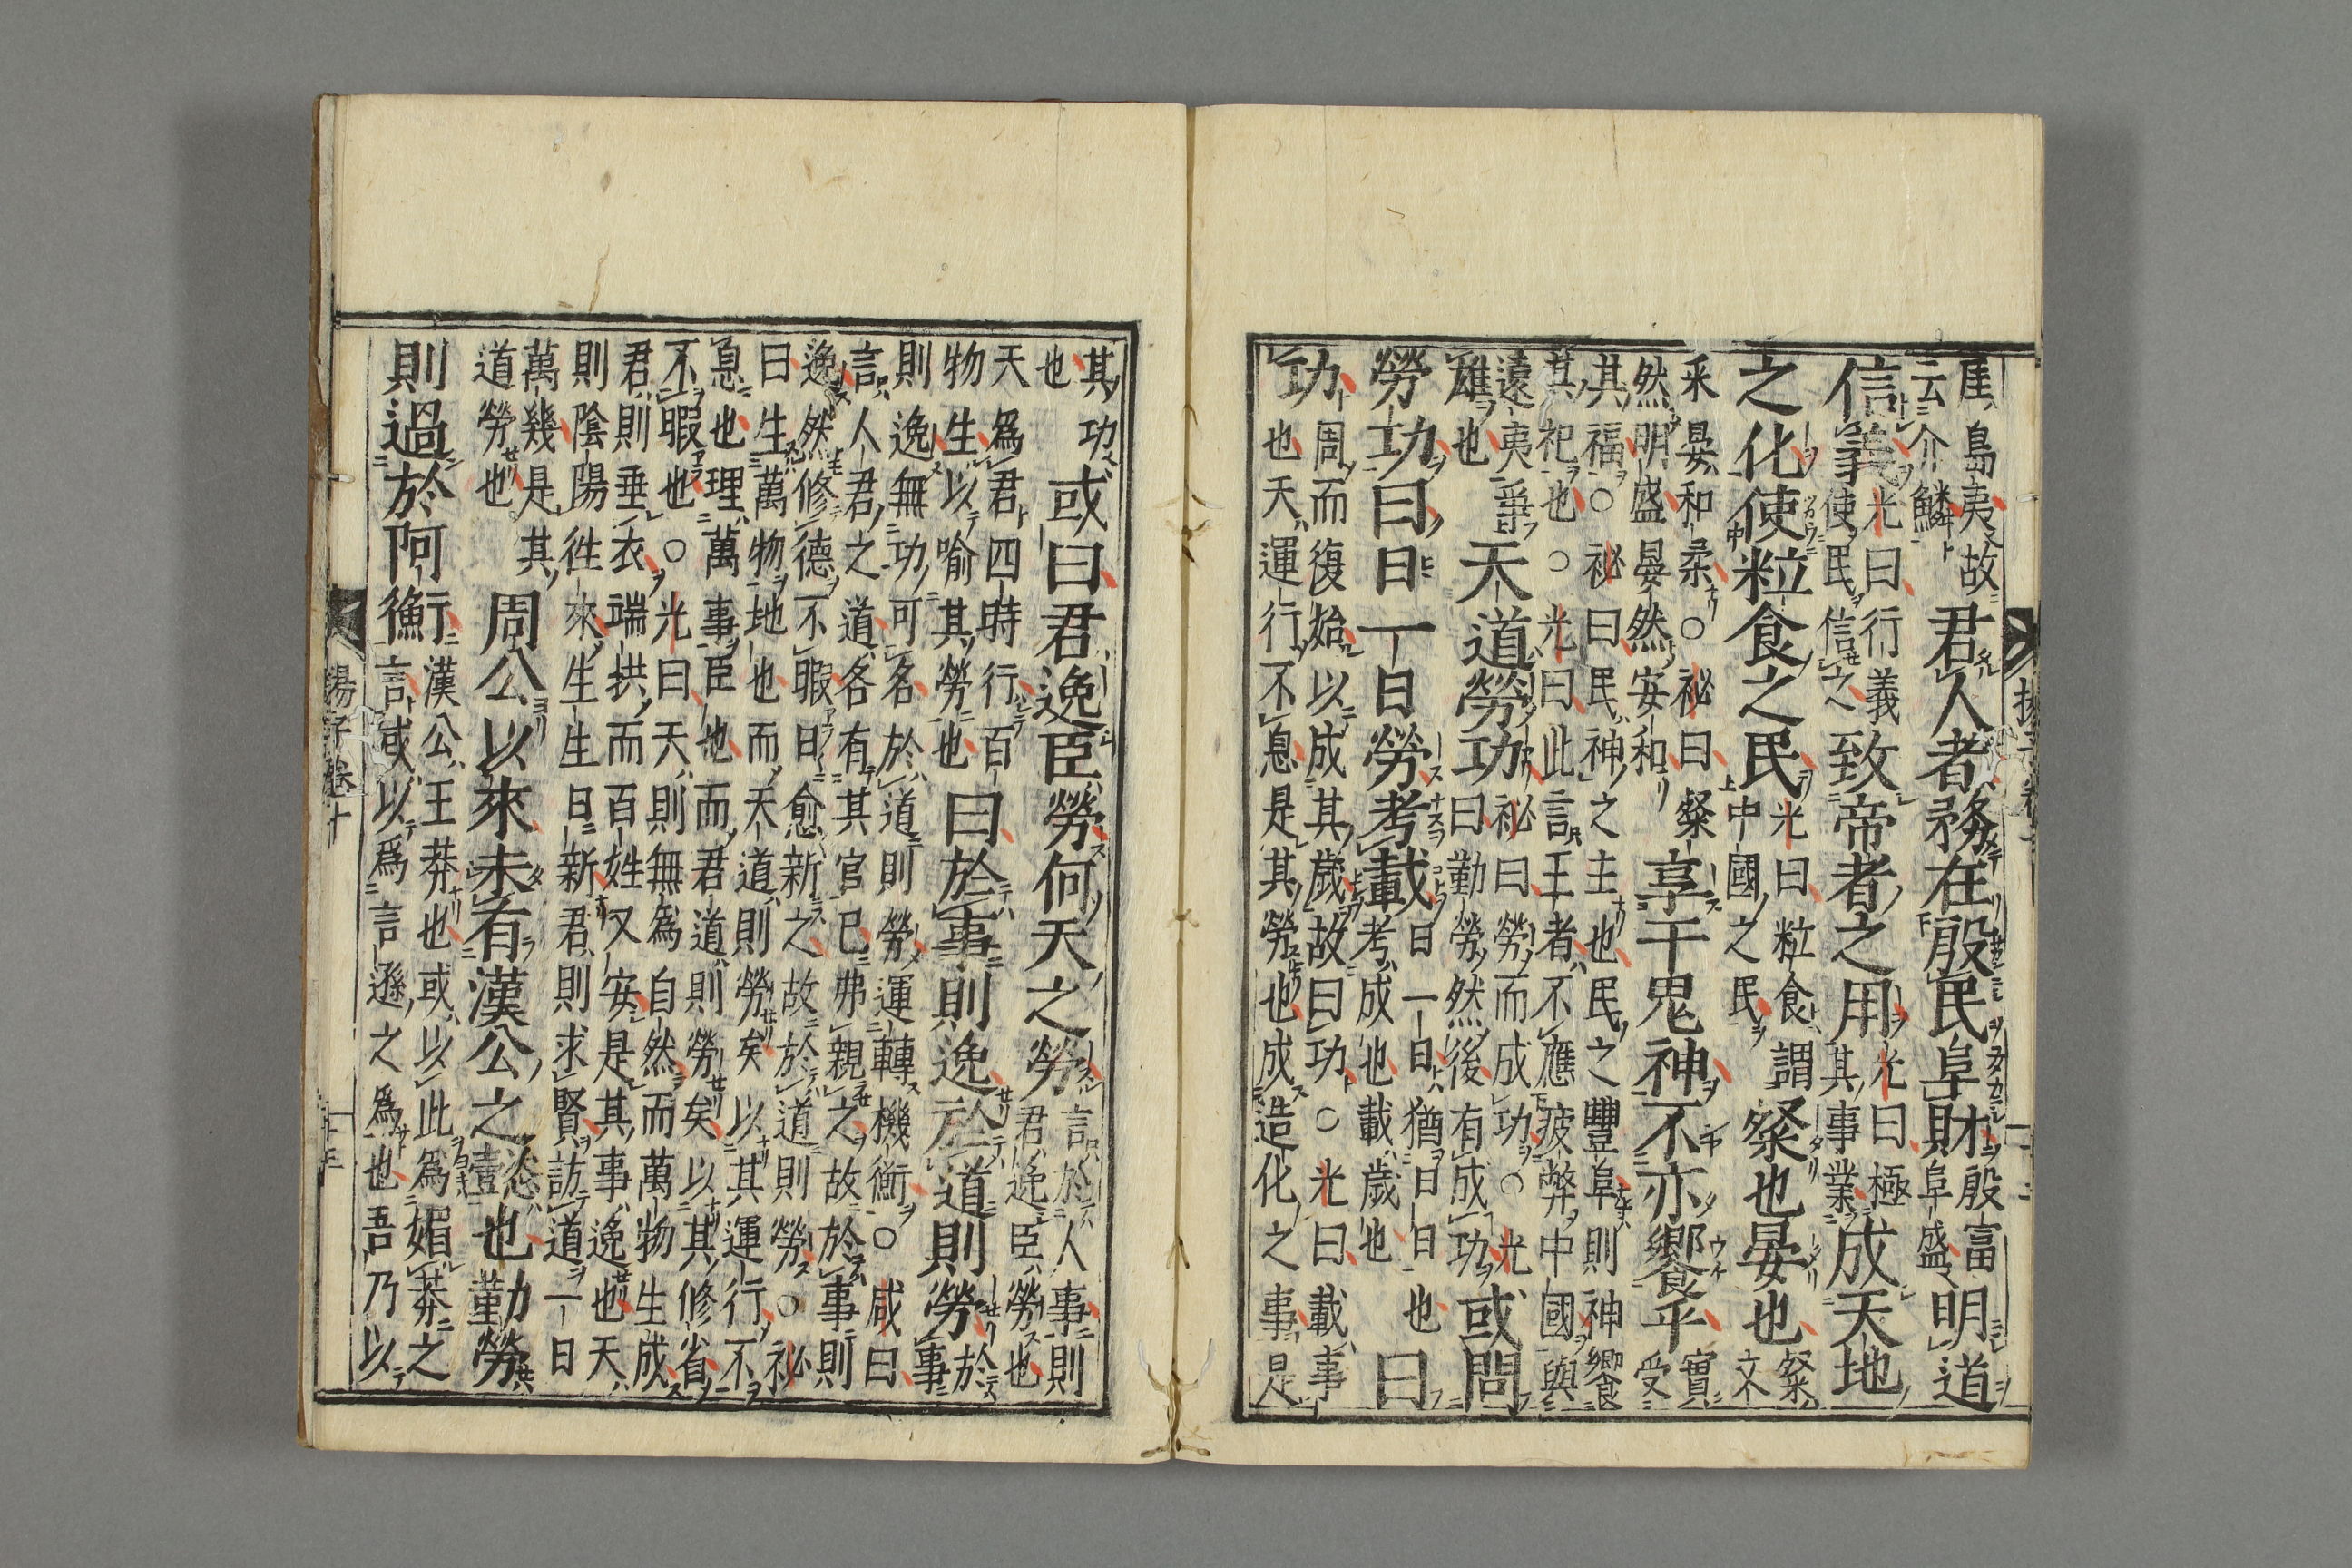 厓島夷故
云介鱗
君人者務在殷民阜財
殷富
阜盛
明道
信義
光曰行義
使民信之
致帝者之用
光曰極
其事業
成天地
之化使粒食之民
光曰粒食謂
中國之民
粲也晏也
粲
文
采晏和柔○祕曰粲
然明盛晏然安和
享于鬼神不亦饗乎
實
受
其福○祕曰民神之主也民之豐阜則神饗
其祀也○光曰此言王者不應疲弊中國與
遠夷爭
雄也
天道勞功
祕曰勞而成功○光
曰勤勞然後有成功
或問
勞功曰日一日勞考載
日一日猶日日也
考成也載歲也
曰
功
周而復始以成其歲故曰功○光曰載事
也天運行不息是其勞也成造化之事是
其功
也
或曰君逸臣勞何天之勞
言於人事則
君逸臣勞也
天爲君四時行百
物生以喻其勞也
曰於事則逸於道則勞
於
事
則逸無功可名於道則勞運轉機衡○咸曰
言人君之道各有其官已弗親之故於事則
逸然修德不暇日愈新之故於道則勞○祕
曰生生萬物地也而天道則勞矣以其運行不
息也理萬事臣也而君道則勞矣以其修省
不暇也○光曰天則無爲自然而萬物生成
君則垂衣端拱而百姓又安是其事逸也天
則陰陽徃來生生日新君則求賢訪道一日
萬幾是其
道勞也
周公以來未有漢公之懿也勤勞
則過於阿衡
漢公王莽也或以此爲媚莽之
言或以爲言遜之爲也吾乃以
揚子卷十